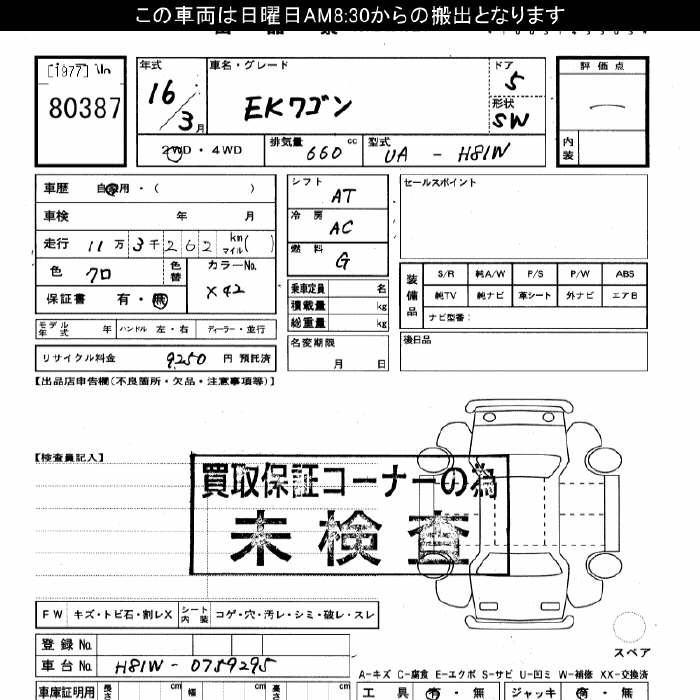 この車両は日曜日AM8:30からの搬出となります
[1977]
80387
年式 車名・グレード ドア 評価点
16/3月 EKワゴン 5
形状 SW
2WD・4WD 排気量 660 cc 型式 UA - H81W 内装
車歴 自家用・( )
車検 年 月
走行 11万3千262 km マイル( )
色 クロ 色替 カラーNo. X42
保証書 有・無
モデル年式 年 ハンドル 左・右 ディーラー・並行
リサイクル料金 9250 円 預託済
シフト AT
冷房 AC
燃料 G
乗車定員 名
積載量 kg
総重量 kg
名変期限
月 日
セールスポイント
装備品 S/R 純A/W P/S P/W ABS
純TV 純ナビ 革シート 外ナビ エアB
ナビ型番:
後日品
【出品店申告欄(不良箇所・欠品・注意事項等)】
【検査員記入】
買取保証コーナーの為
未検査
FW キズ・トビ石・割レX シート内装 コゲ・穴・汚レ・シミ・破レ・スレ
スペア
登録No.
車台No. H81W - 0759295
A-キズ C-腐食 E-エクボ S-サビ U-凹ミ W-補修 XX-交換済
車庫証明用 長さ cm 幅 cm 高さ cm 工具 有・無 ジャッキ 有・無